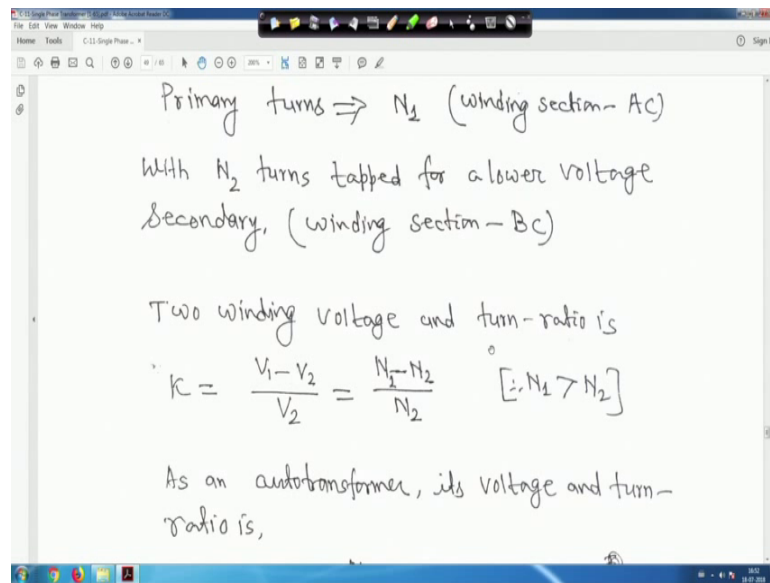 C-11-Single Phase Transformer (5.40).pdf - Adobe Acrobat Reader DC
File Edit View Window Help
Home Tools C-11-Single Phase ... × Sign
Primary turns ⇒ N₁ (winding section- AC)
With N₂ turns tapped for a lower voltage
Secondary, (winding section - BC)
Two winding voltage and turn-ratio is
K = (V₁ - V₂)/V₂ = (N₁ - N₂)/N₂ [∴ N₁ > N₂]
As an autotransformer, its voltage and turn-
ratio is,
16:52